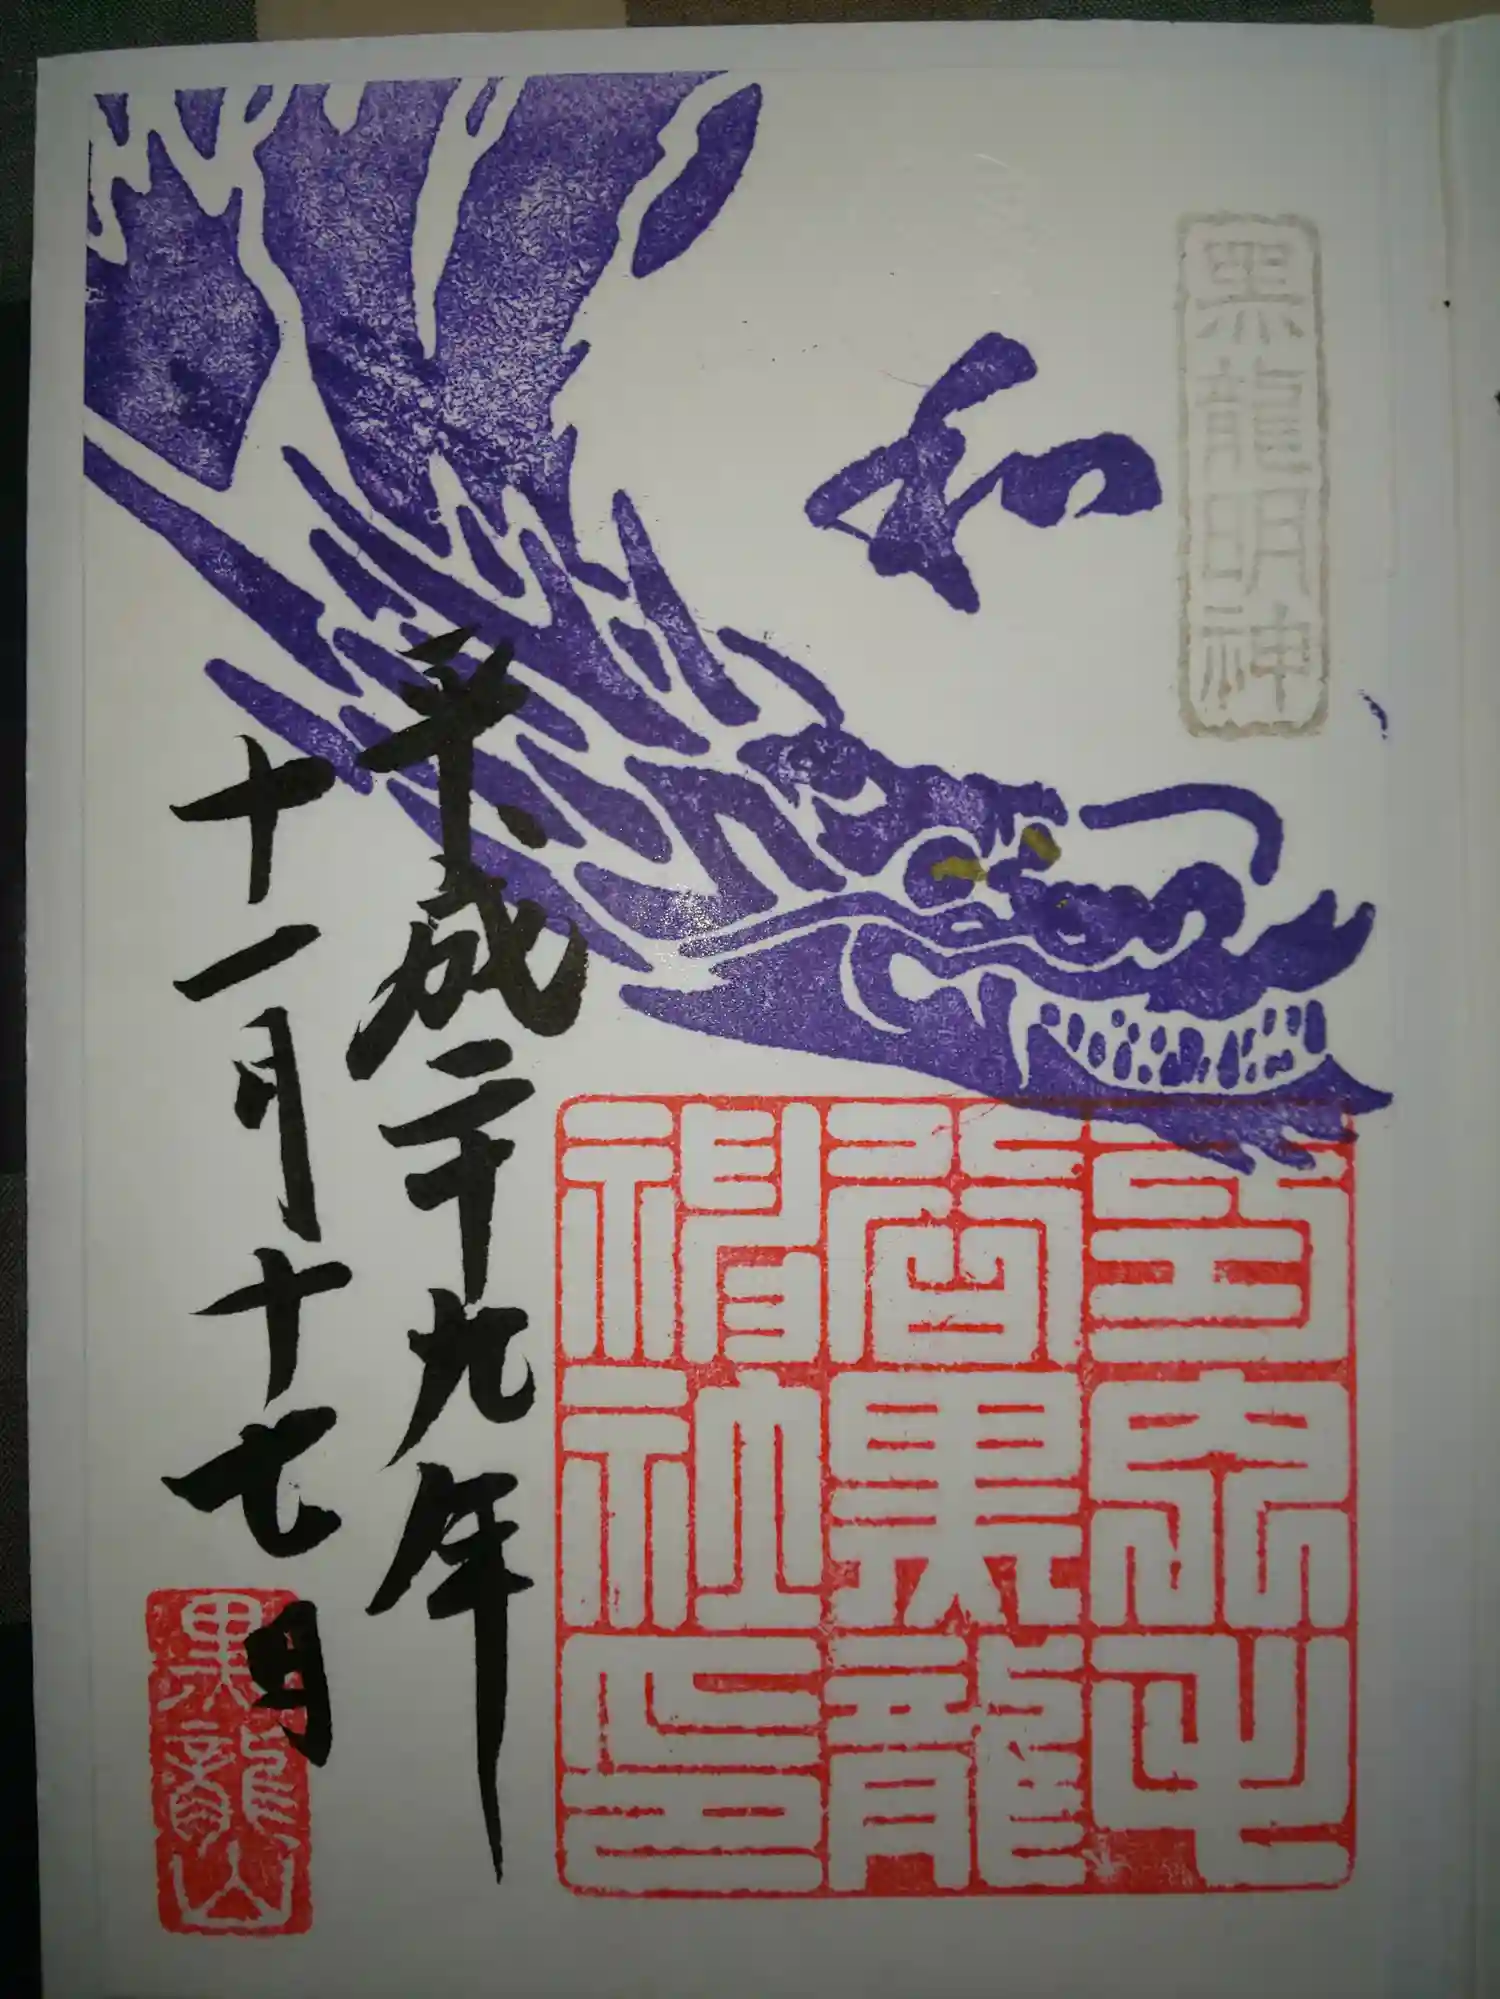 黒龍明神
和
黒龍
神社印
平成二十九年
十一月十七日
黒龍山